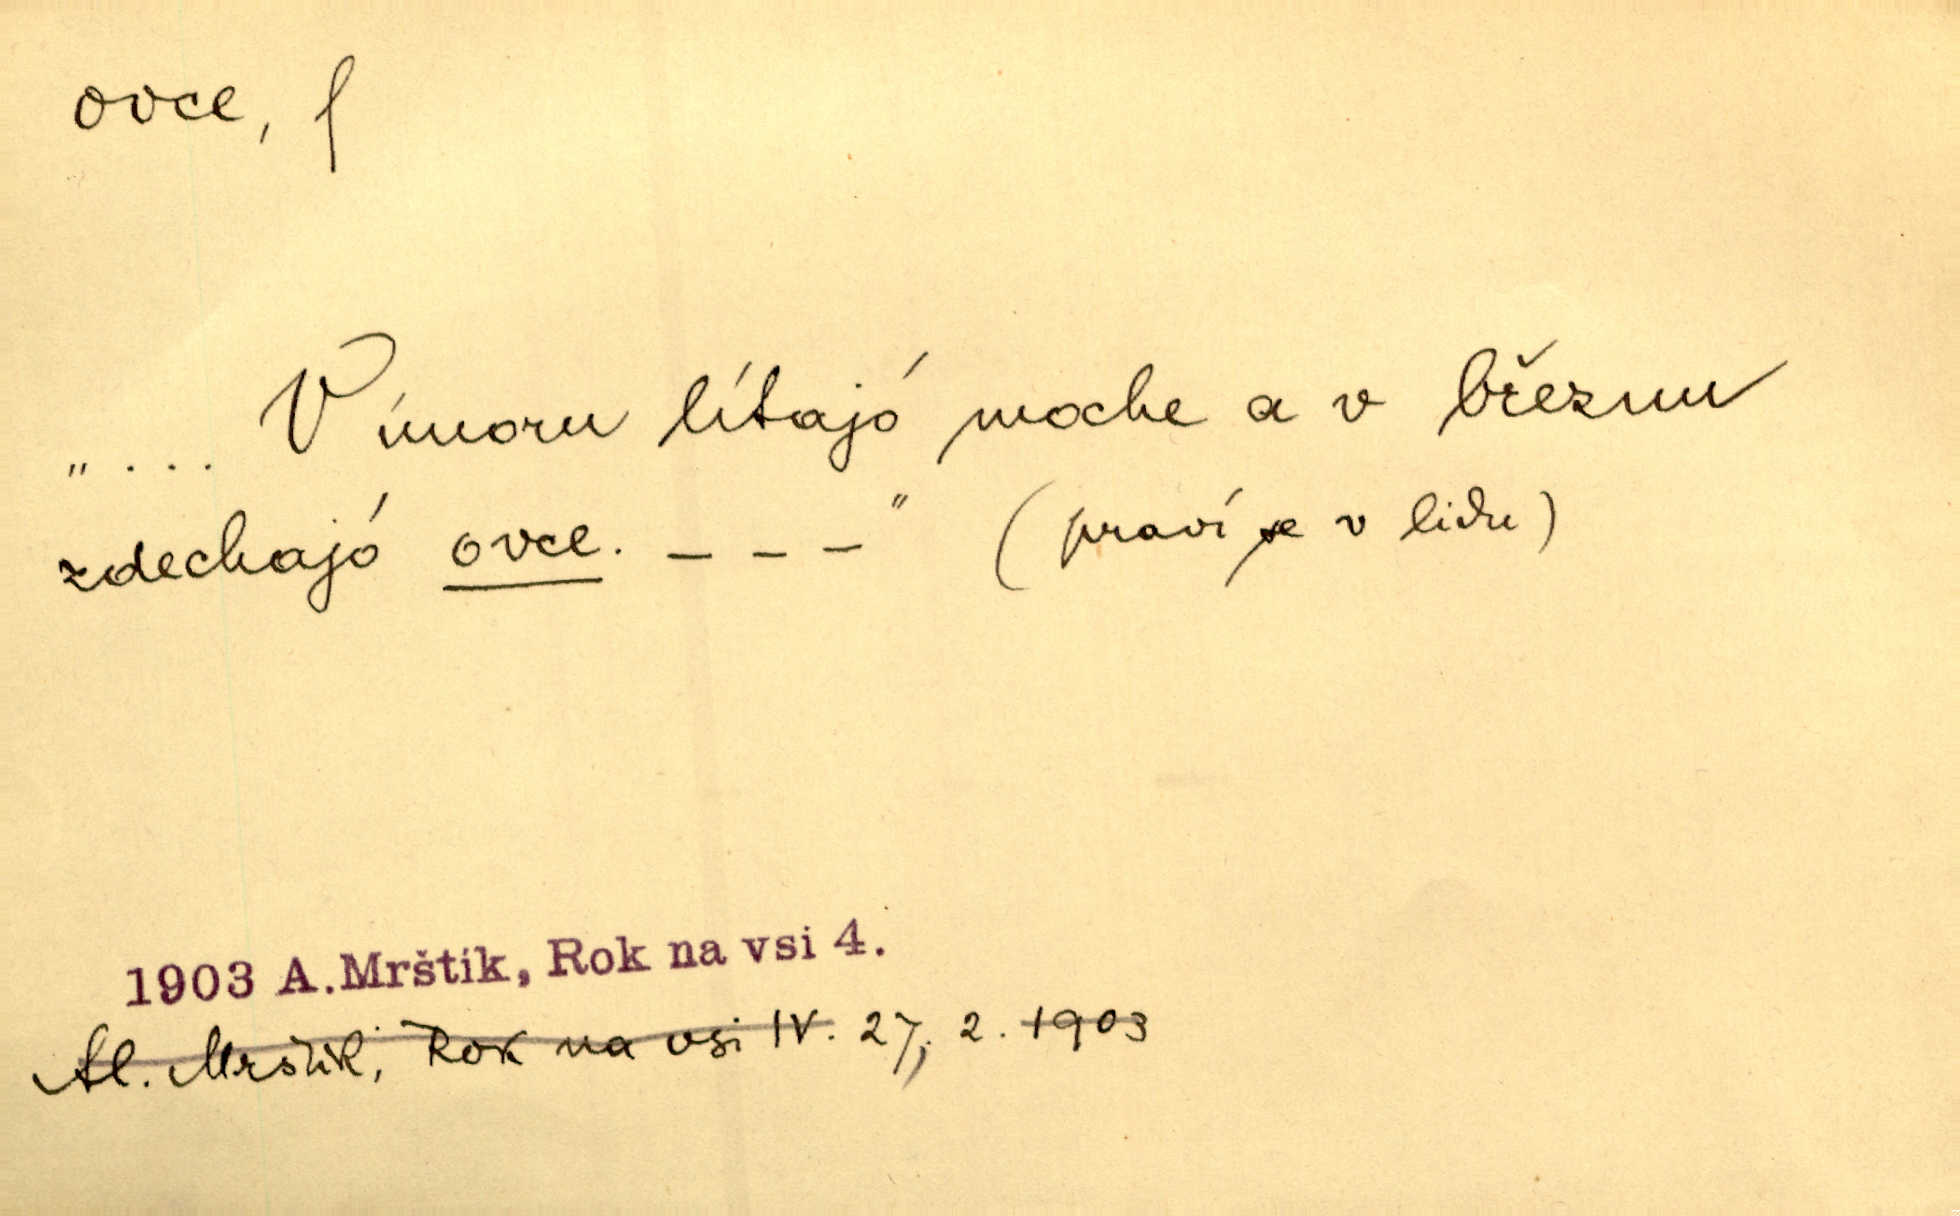 ovce, f
„ . . . V únoru lítajó moche a v březnu
zdechajó ovce. – – – " (praví se v lidu)
1903 A.Mrštík, Rok na vsi 4.
Al. Mrštík, Rok na vsi IV. 27, 2. 1903